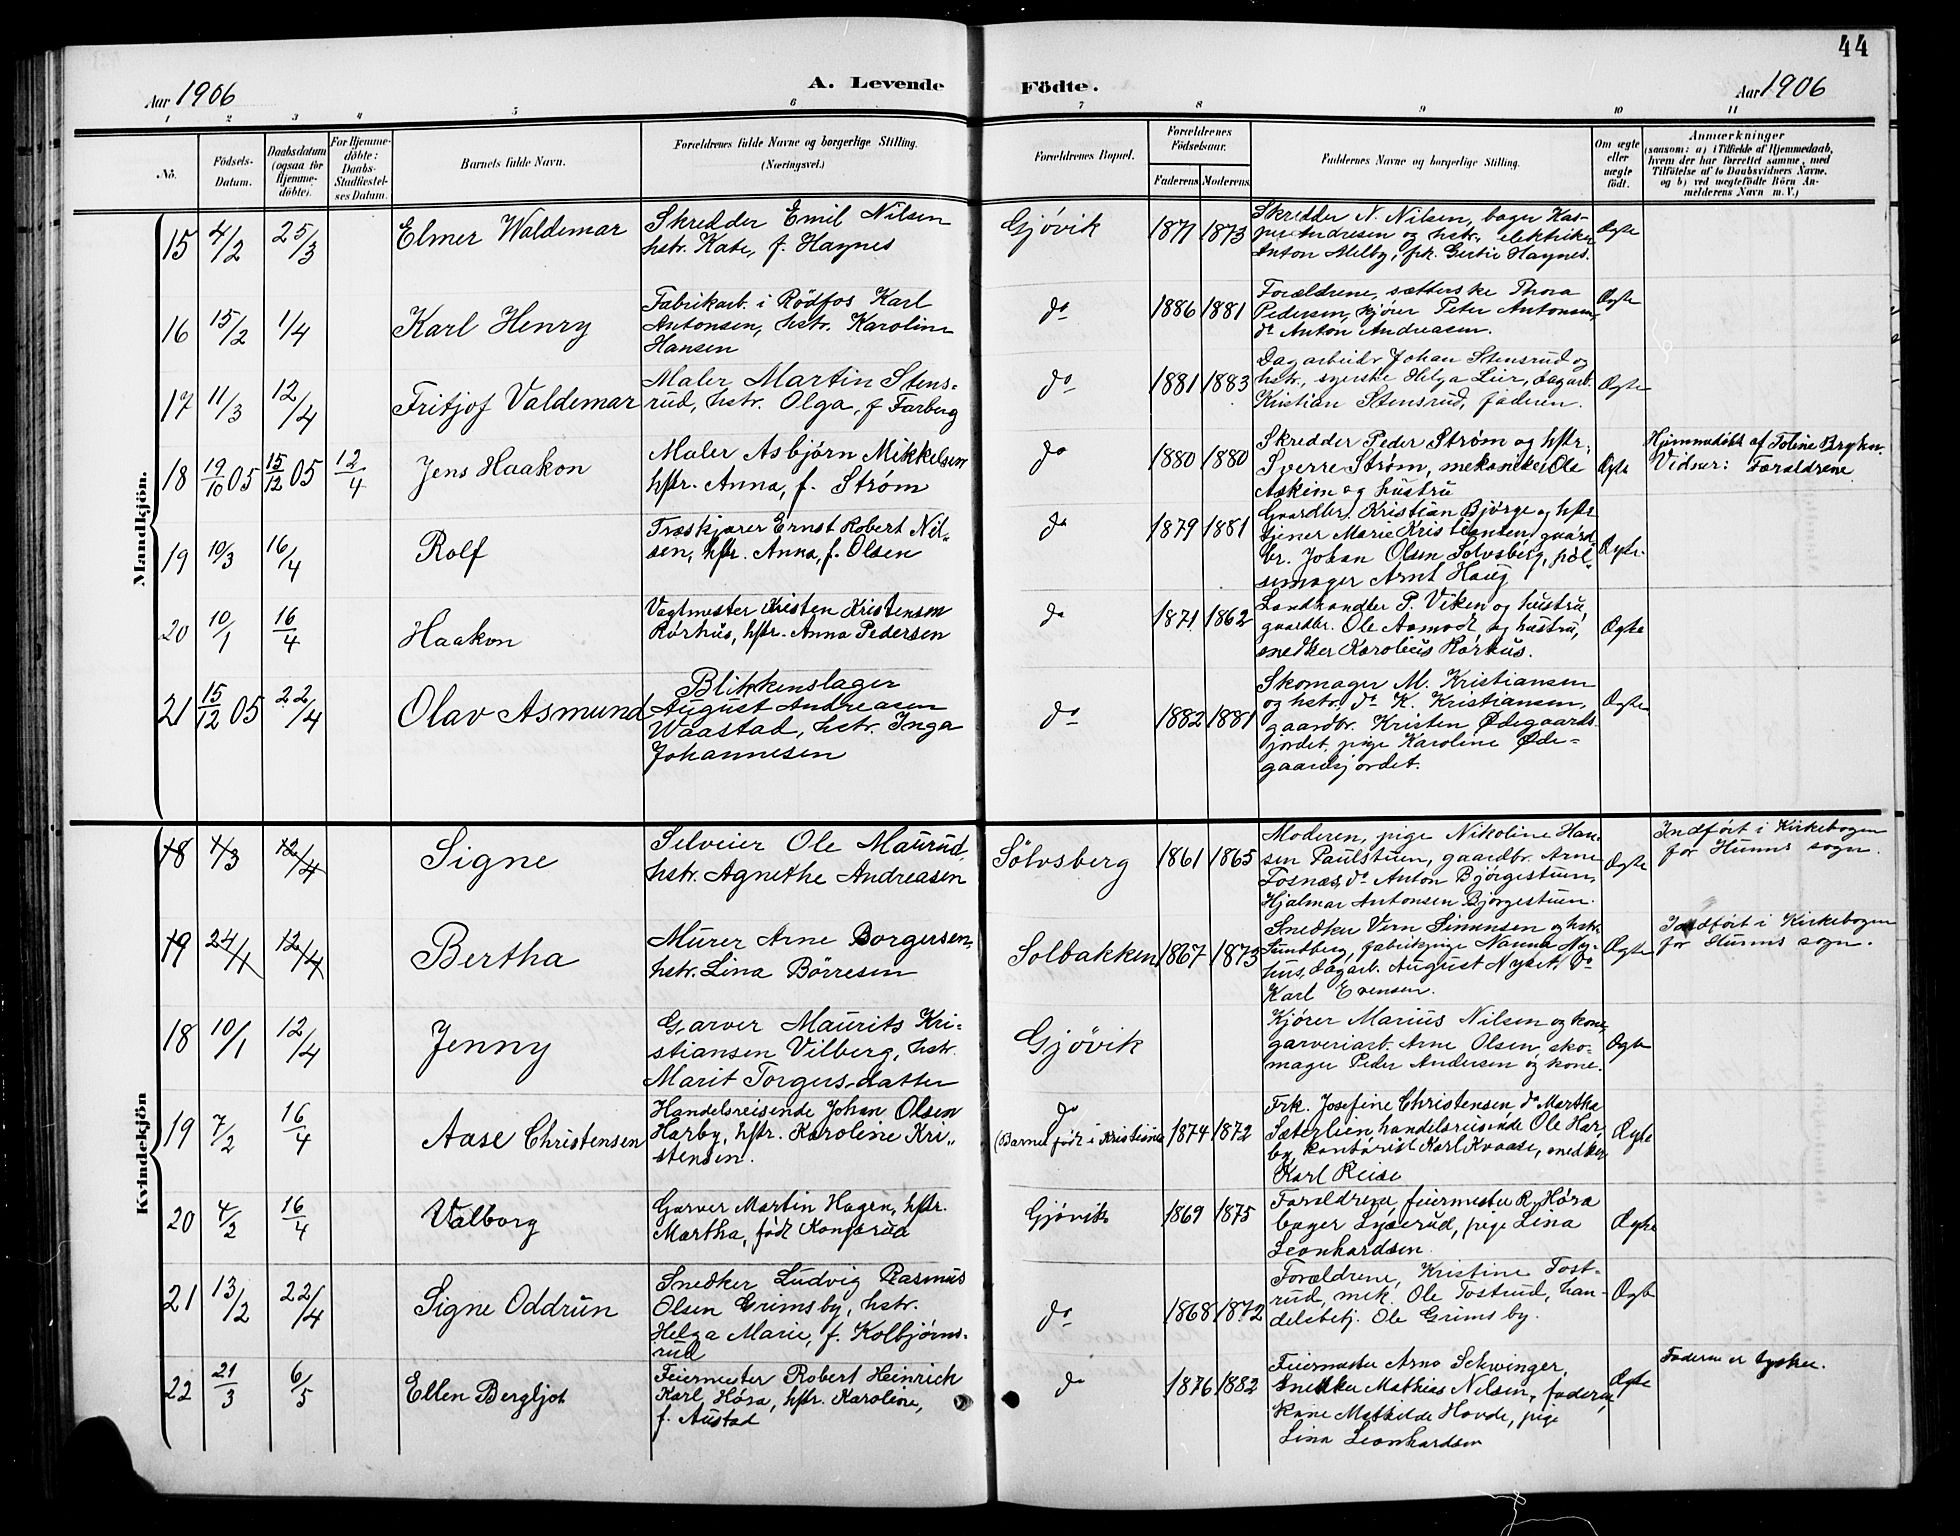 44
Aar 1906
A. Levende
Födte.
Aar 1906
1 2 3 4 5 6 7 8 9 10 11
No.
Födsels-Datum.
Daabsdatum (ogsaa for Hjemme-döbte).
For Hjemme-döbte: Daabs-Stadfæstel-ses Datum.
Barnets fulde Navn.
Forældrenes fulde Navne og borgerlige Stilling.
(Næringsvei.)
Forældrenes Bopæl.
Forældrenes Födselsaar.
Faderens. Moderens.
Faddernes Navne og borgerlige Stilling.
Om ægte eller uægte födt.
Anmærkninger
(saasom: a) i Tilfælde af Hjemmedaab,
hvem der har forrettet samme, med
Tilföielse af to Daabsvidners Navne,
og b) ved uægtefödte Börn An-
melderens Navn m. V.)
Mandkjön.
15 4/2 25/3 Elmer Waldemar
Skredder Emil Nilsen
hstr. Kate, f. Haynes
Gjøvik 1871 1873
Skredder N. Nilsen, bager Kas-
per Andresen og hstr., elektriker
Anton Melby, frk. Gertie Haynes.
Ægte
16 15/2 1/4 Karl Henry
Fabrikarb. i Rödfos Karl
Antonsen, hstr. Karoline
Hansen
do 1886 1881
Forældrene, sætterske Thora
Pedersen, kjører Peter Antonsen,
do Anton Andreasen.
Ægte
17 11/3 12/4 Fritjof Valdemar
Maler Martin Stens-
rud, hstr. Olga, f Farberg
do 1881 1883
Dagarbeidr Johan Stensrud og
hstr., syerske Helga Lier, dagarb.
Kristian Stensrud, faderen.
Ægte
18 19/10 05 15/12 05 12/4 Jens Haakon
Maler Asbjørn Mikkelsen
hstr. Anna, f. Strøm
do 1880 1880
Skredder Peder Strøm og hstr.
Sverre Strøm, mekaniker Ole
Askim og hustru
Ægte
Hjemmedöbt af Toline Bryhn.
Vidner: Forældrene
19 10/3 16/4 Rolf
Træskjærer Ernst Robert Nil-
sen, hstr. Anna, f. Olsen
do 1879 1881
Gaardbr. Kristian Bjørge og hstr
tjener Marie Kristiansen, gaard-
br. Johan Olsen Solvsberg, pøl-
semager Arnt Haug
Ægte.
20 10/1 16/4 Haakon
Vagtmester Kristen Kristensen
Rørhus, hstr. Anna Pedersen
do 1871 1862
Landhandler P. Viken og hustru,
gaardbr. Ole Aamodt og hustru,
snedker Karolius Rørhus.
Ægte
21 15/12 05 22/4 Olav Asmund
Blikkenslager
August Andreasen
Waastad, hstr. Inga
Johannesen
do 1882 1881
Skomager M. Kristiansen
og hstr. do K. Kristiansen,
gaardbr. Kristen Ødegaards-
jordet, pige Karoline Øde-
gaardsjordet.
Ægte
Kvindekjön
18 4/3 12/4 Signe
Selveier Ole Maurud,
hstr. Agnethe Andreasen
Sölvsberg 1861 1865
Moderen, pige Nikoline Han-
sen Paulstuen, gaardbr. Arne
Fosnæs, do Anton Bjørgestuen,
Hjalmar Antonsen Bjørgestuen.
Ægte
Indført i Kirkebogen
for Hunns sogn.
19 24/1 12/4 Bertha
Murer Arne Borgersen,
hstr. Lina Børresen
Solbakken 1867 1873
Snedker Simensen og hstr.
Sundberg, fabrikpige Nanna Ny-
hus, dagarb. August Nyset, do
Karl Evensen.
Ægte
Indført i Kirkebogen
for Hunns sogn.
18 10/1 12/4 Jenny
Garver Maurits Kri-
stiansen Vilberg, hstr.
Marit Torgersdatter
Gjøvik
Kjører Marius Nilsen og kone,
garveriarb. Arne Olsen, sko-
mager Peder Andersen og kone.
Ægte
19 7/2 16/4 Aase Christensen
Handelsreisende Johan Olsen
Harby, hstr. Karoline Kri-
stensen.
do
(Barnet født i Kristiania 1874 1872
Frk. Josefine Christensen, do Martha
Sæterlien, handelsreisende Ole Har-
by, kontorist Karl Kvaase, snedker
Karl Reise
Ægte
20 4/2 16/4 Valborg
Garver Martin Hagen, hstr.
Martha, født Konserud
Gjøvik 1869 1875
Forældrene, feiermester R. Høra
bager Lyserud, pige Lina
Leonhardsen
Ægte
21 13/2 22/4 Signe Oddrun
Snedker Ludvig Rasmus
Olsen Grimsby, hstr.
Helga Marie, f. Kolbjørns-
rud
do 1868 1872
Forældrene, Kristine Tost-
rud, mek. Ole Tostrud, han-
delsbetj. Ole Grimsby.
Ægte
22 21/3 6/5 Ellen Bergljot
Feiermester Robert Heinrich
Karl Høra, hstr. Karoline,
f. Austad
do 1876 1882
Feiermester Arno Schwinger,
Snedker Mathias Nilsen, faderen,
Kone Mathilde Hovde, pige
Lina Leonhardsen
Ægte
Faderen er tysker.